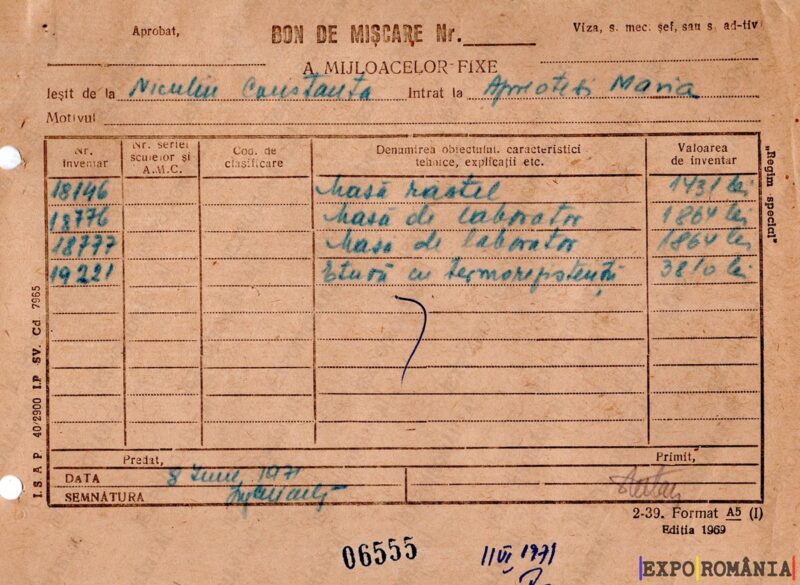 Aprobat,
BON DE MIȘCARE Nr.
Viza, s. mec. șef, sau s. ad-tiv
A MIJLOACELOR FIXE
Ieșit de la Niculiu Constanța Intrat la Maria
Motivul
Nr. inventar
Nr. seriei sculelor și A.M.C.
Cod. de clasificare
Denumirea obiectului, caracteristici tehnice, explicații etc.
Valoarea de inventar
18146 Masă rastel 1431 lei
18776 Masă de laborator 1864 lei
18777 Masă de laborator 1864 lei
19221 Etuvă cu termorezistență 3810 lei
„Regim special”
I.S.A.P. 40/2900 I.P. SV. Cd 7965
Predat,
Primit,
DATA 8 Iunie 1971
SEMNĂTURA
2-39. Format A5 (I)
Editia 1969
06555
11 VI 1971
EXPO ROMÂNIA